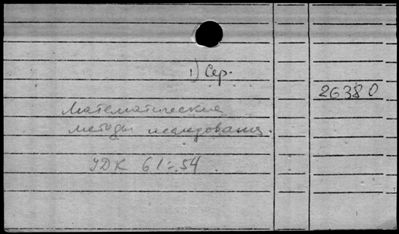 1) Сер.
26380
Математические
методы исследования.
УДК 61:54.